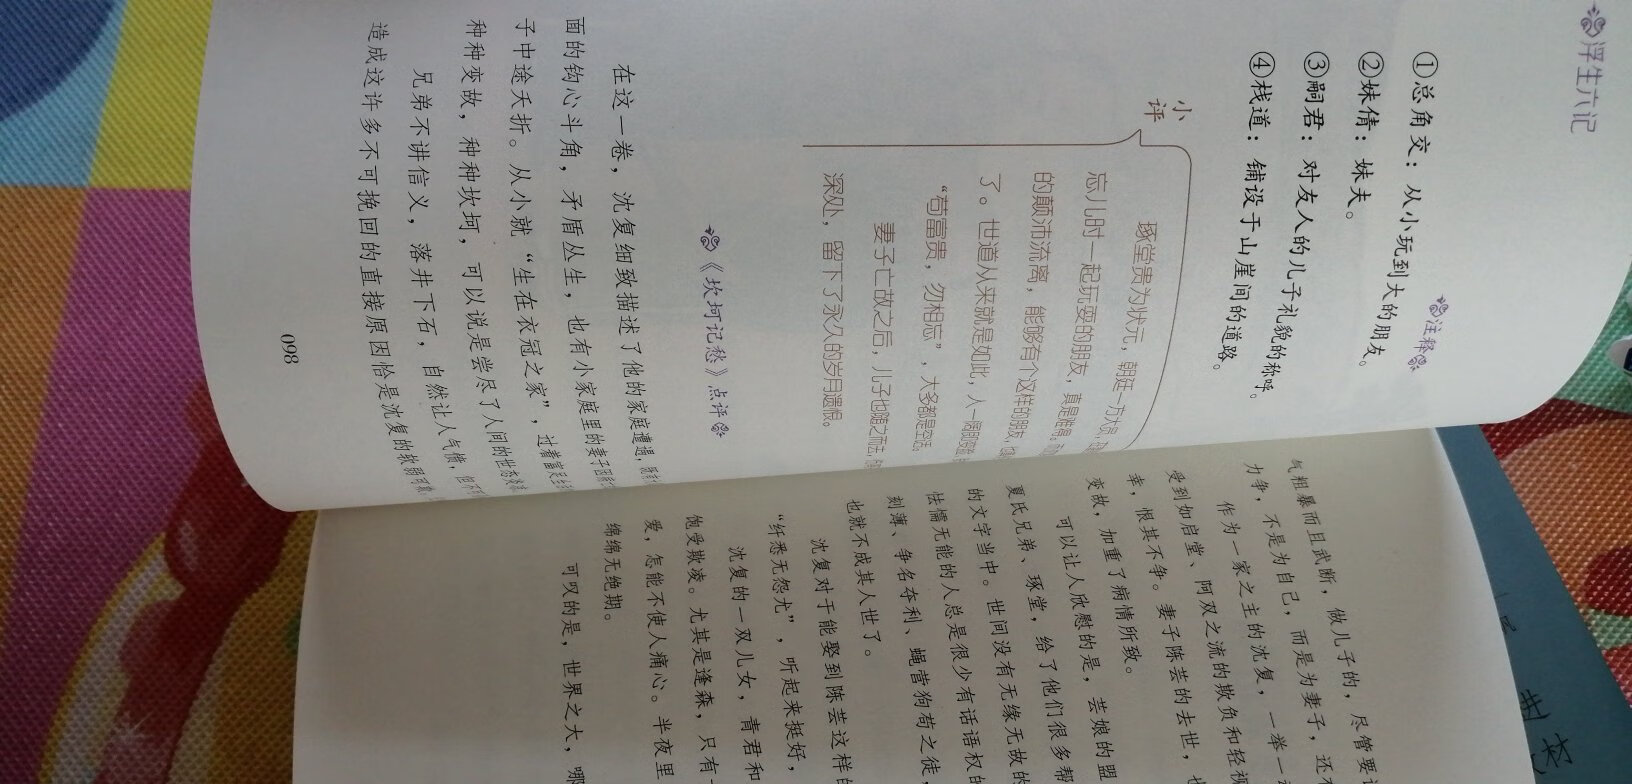 浮生六记
注释
①总角交：从小玩到大的朋友。
②妹倩：妹夫。
③嗣君：对友人的儿子礼貌的称呼。
④栈道：铺设于山崖间的道路。
小评
琢堂贵为状元，朝廷一方大员，
忘儿时一起玩耍的朋友，真是难得。
的颠沛流离，能够有个这样的朋友，
了。世道从来就是如此，人一阔脸就变，
“苟富贵，勿相忘”，大多都是空话。
妻子亡故之后，儿子也随之而去，
深处，留下了永久的岁月遗恨。
《坎坷记愁》点评
在这一卷，沈复细致描述了他的家庭遭遇，
面的钩心斗角，矛盾丛生，也有小家庭里的妻子因病
子中途夭折。从小就“生在衣冠之家”，过着富足
种种变故，种种坎坷，可以说是尝尽了人间的世态炎凉
兄弟不讲信义，落井下石，自然让人气愤，但
造成这许多不可挽回的直接原因恰是沈复的软弱可欺，
098
气粗暴而且武断，做儿子的，尽管要
力争，不是为自己，而是为妻子，还
作为一家之主的沈复，一举一
受到如启堂、阿双之流的欺负和轻视
幸，恨其不争。妻子陈芸的去世，也
变故，加重了病情所致。
可以让人欣慰的是，芸娘的盟
夏氏兄弟、琢堂，给了他们很多帮
的文字当中。世间没有无缘无故的
怯懦无能的人总是很少有话语权的
刻薄、争名夺利、蝇营狗苟之徒，
也就不成其人世了。
沈复对于能娶到陈芸这样的
“纤悉无怨尤”，听起来挺好，
沈复的一双儿女，青君和
饱受欺凌。尤其是逢森，只有
爱，怎能不使人痛心。半夜里
绵绵无绝期。
可叹的是，世界之大，哪